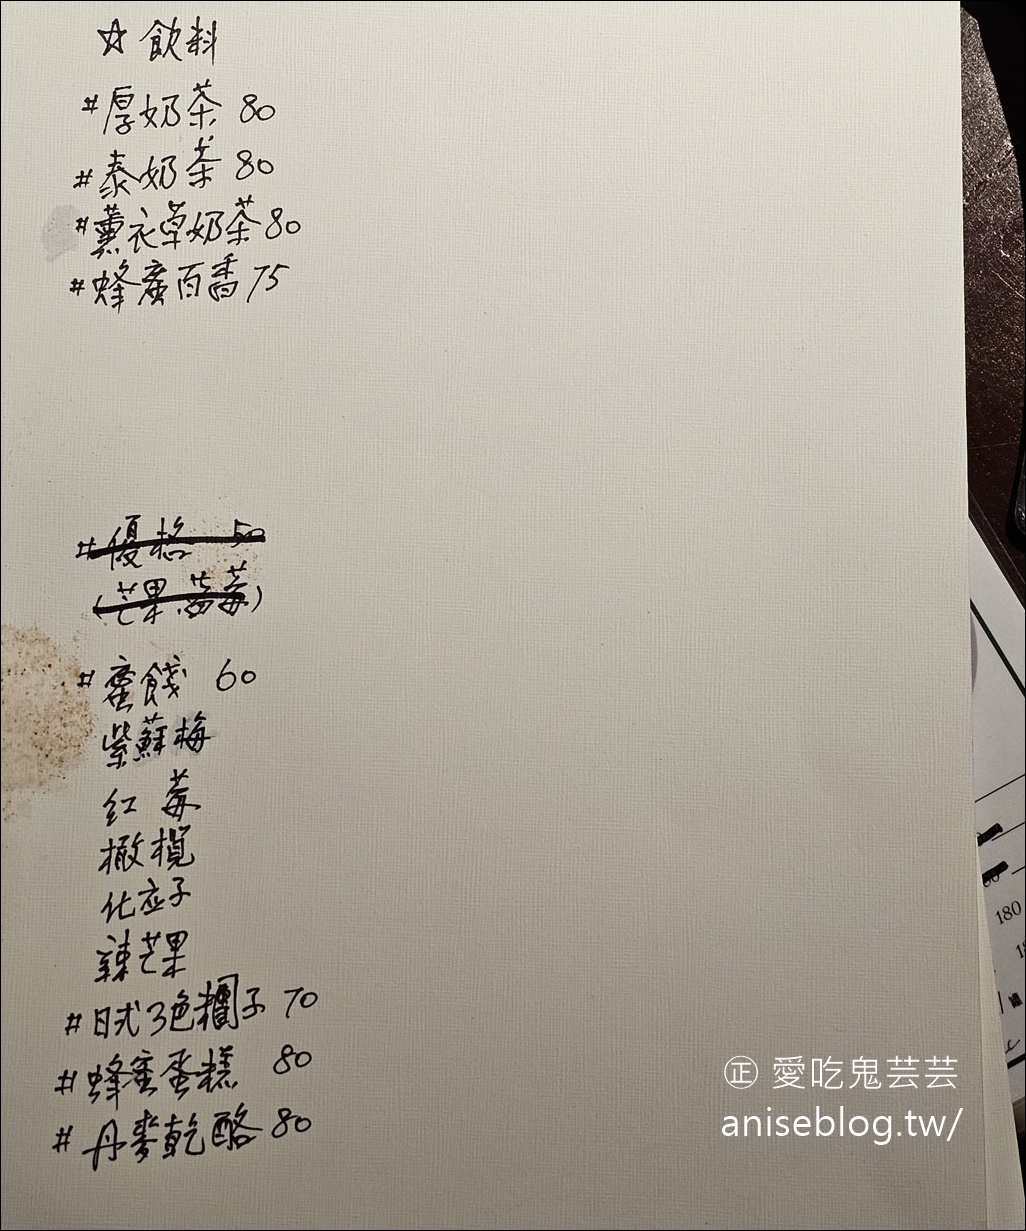 ☆ 飲料
#厚奶茶 80
#泰奶茶 80
#薰衣草奶茶 80
#蜂蜜百香 75
#優格 50
(芒果.藍莓)
#蜜餞 60
紫蘇梅
紅莓
橄欖
化应子
辣芒果
#日式3色糰子 70
#蜂蜜蛋糕 80
#丹麥乾酪 80
180
㊣ 愛吃鬼芸芸
aniseblog.tw/